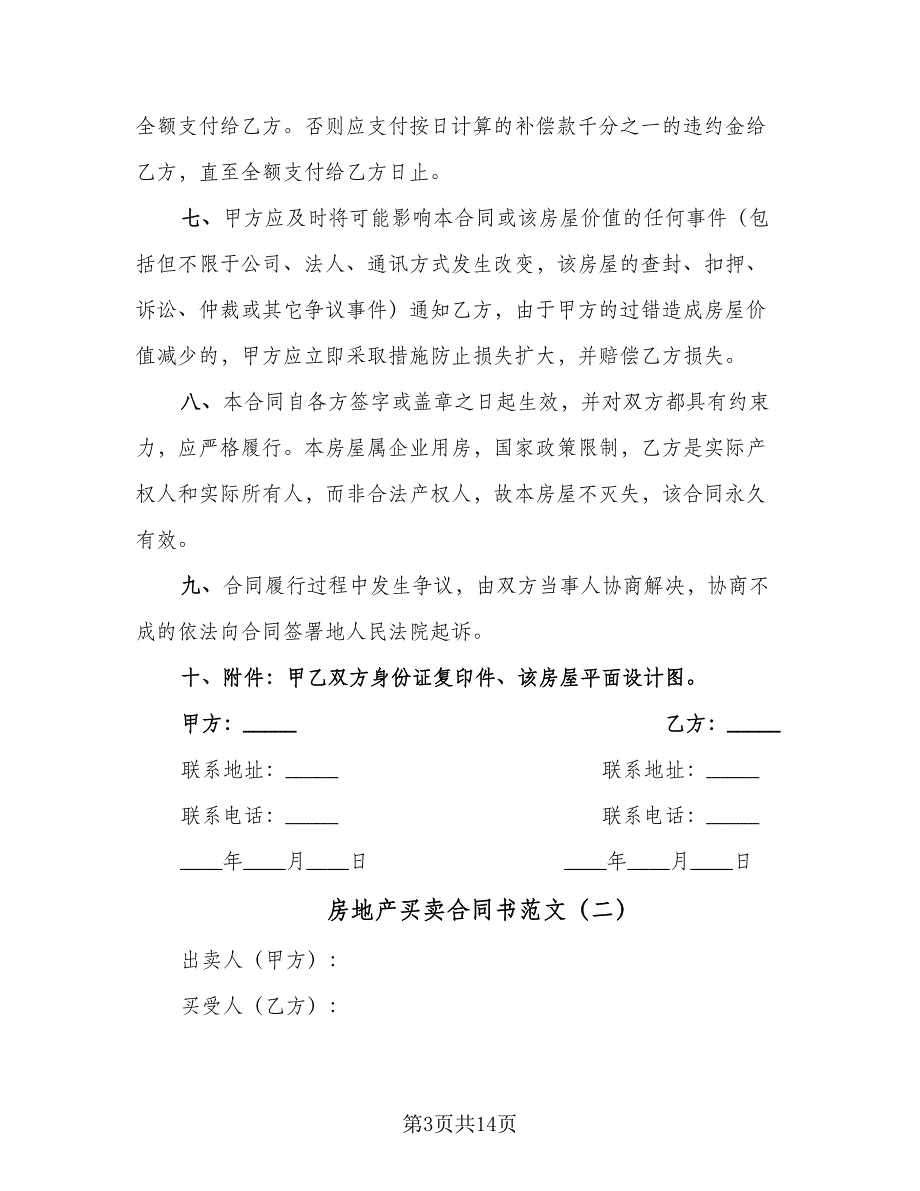 全额支付给乙方。否则应支付按日计算的补偿款千分之一的违约金给
乙方，直至全额支付给乙方日止。
七、甲方应及时将可能影响本合同或该房屋价值的任何事件（包
括但不限于公司、法人、通讯方式发生改变，该房屋的查封、扣押、
诉讼、仲裁或其它争议事件）通知乙方，由于甲方的过错造成房屋价
值减少的，甲方应立即采取措施防止损失扩大，并赔偿乙方损失。
八、本合同自各方签字或盖章之日起生效，并对双方都具有约束
力，应严格履行。本房屋属企业用房，国家政策限制，乙方是实际产
权人和实际所有人，而非合法产权人，故本房屋不灭失，该合同永久
有效。
九、合同履行过程中发生争议，由双方当事人协商解决，协商不
成的依法向合同签署地人民法院起诉。
十、附件：甲乙双方身份证复印件、该房屋平面设计图。
甲方：_____ 乙方：_____
联系地址：_____ 联系地址：_____
联系电话：_____ 联系电话：_____
____年____月____日 ____年____月____日
房地产买卖合同书范文（二）
出卖人（甲方）：
买受人（乙方）：
第3页共14页